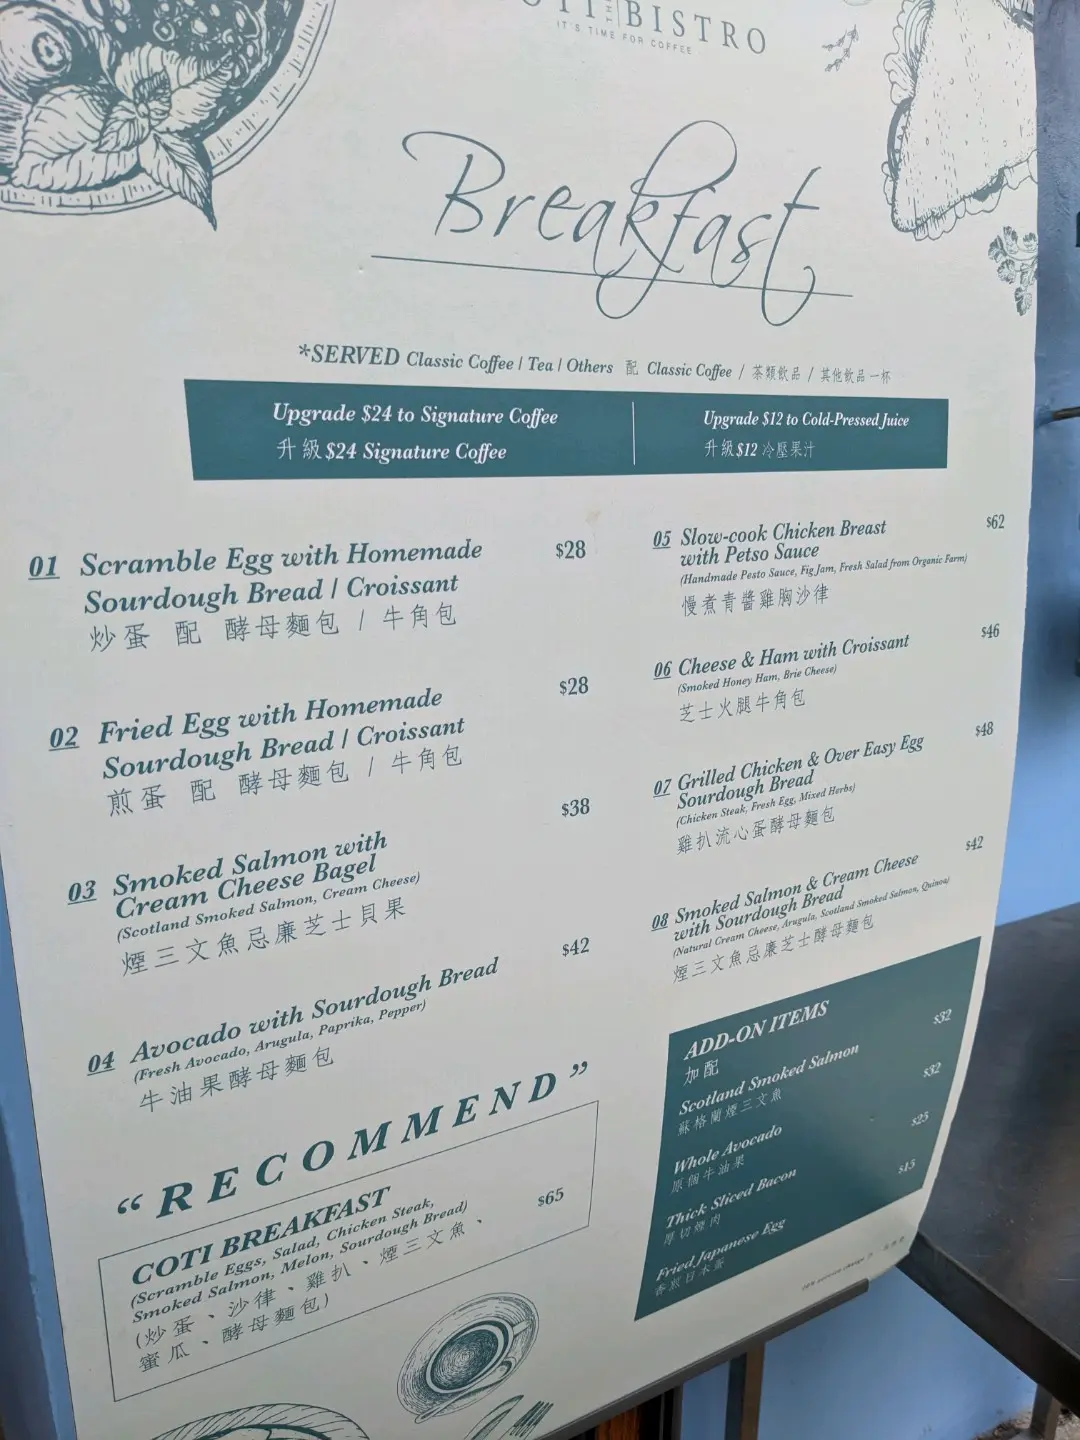 OTI THE BISTRO
IT'S TIME FOR COFFEE
Breakfast
*SERVED Classic Coffee / Tea / Others 配 Classic Coffee / 茶類飲品 / 其他飲品一杯
Upgrade $24 to Signature Coffee
升級$24 Signature Coffee
Upgrade $12 to Cold-Pressed Juice
升級$12 冷壓果汁
01 Scramble Egg with Homemade $28
Sourdough Bread / Croissant
炒蛋 配 酵母麵包 / 牛角包
02 Fried Egg with Homemade $28
Sourdough Bread / Croissant
煎蛋 配 酵母麵包 / 牛角包
03 Smoked Salmon with $38
Cream Cheese Bagel
(Scotland Smoked Salmon, Cream Cheese)
煙三文魚忌廉芝士貝果
04 Avocado with Sourdough Bread $42
(Fresh Avocado, Arugula, Paprika, Pepper)
牛油果酵母麵包
“RECOMMEND”
COTI BREAKFAST $65
(Scramble Eggs, Salad, Chicken Steak,
Smoked Salmon, Melon, Sourdough Bread)
(炒蛋、沙律、雞扒、煙三文魚、
蜜瓜、酵母麵包)
05 Slow-cook Chicken Breast $62
with Petso Sauce
(Handmade Pesto Sauce, Fig Jam, Fresh Salad from Organic Farm)
慢煮青醬雞胸沙律
06 Cheese & Ham with Croissant $46
(Smoked Honey Ham, Brie Cheese)
芝士火腿牛角包
07 Grilled Chicken & Over Easy Egg $48
Sourdough Bread
(Chicken Steak, Fresh Egg, Mixed Herbs)
雞扒流心蛋酵母麵包
08 Smoked Salmon & Cream Cheese $42
with Sourdough Bread
(Natural Cream Cheese, Arugula, Scotland Smoked Salmon, Quinoa)
煙三文魚忌廉芝士酵母麵包
ADD-ON ITEMS
加配
Scotland Smoked Salmon $32
蘇格蘭煙三文魚
Whole Avocado $32
原個牛油果
Thick Sliced Bacon $25
厚切煙肉
Fried Japanese Egg $15
香煎日本蛋